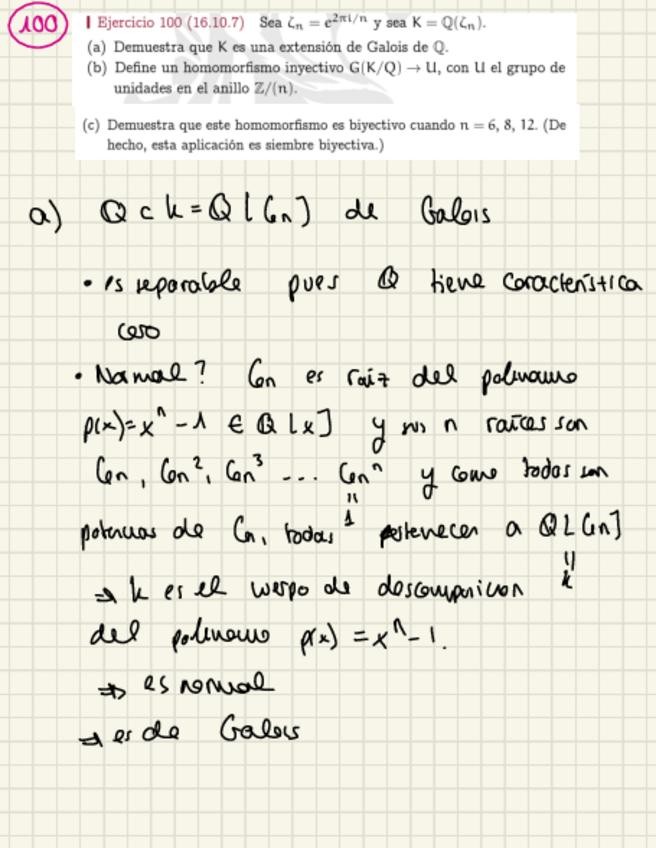 100
Ejercicio 100 (16.10.7) Sea ζₙ = e^{2πi/n} y sea K = Q(ζₙ).
(a) Demuestra que K es una extensión de Galois de Q.
(b) Define un homomorfismo inyectivo G(K/Q) → U, con U el grupo de
unidades en el anillo Z/(n).
(c) Demuestra que este homomorfismo es biyectivo cuando n = 6, 8, 12. (De
hecho, esta aplicación es siembre biyectiva.)
a) Q ⊂ k = Q[ζₙ] de Galois
• es separable pues Q tiene característica
cero
• Normal? ζₙ es raiz del polinomio
p(x)=xⁿ - 1 ∈ Q[x] y sus n raíces son
ζₙ, ζₙ², ζₙ³ ... ζₙⁿ y como todas son
potencias de ζₙ, todas " 1 pertenecen a Q[ζₙ]
⇒ k es el cuerpo de descomposicion " k
del polinomio p(x) = xⁿ - 1.
⇒ es normal
⇒ es de Galois